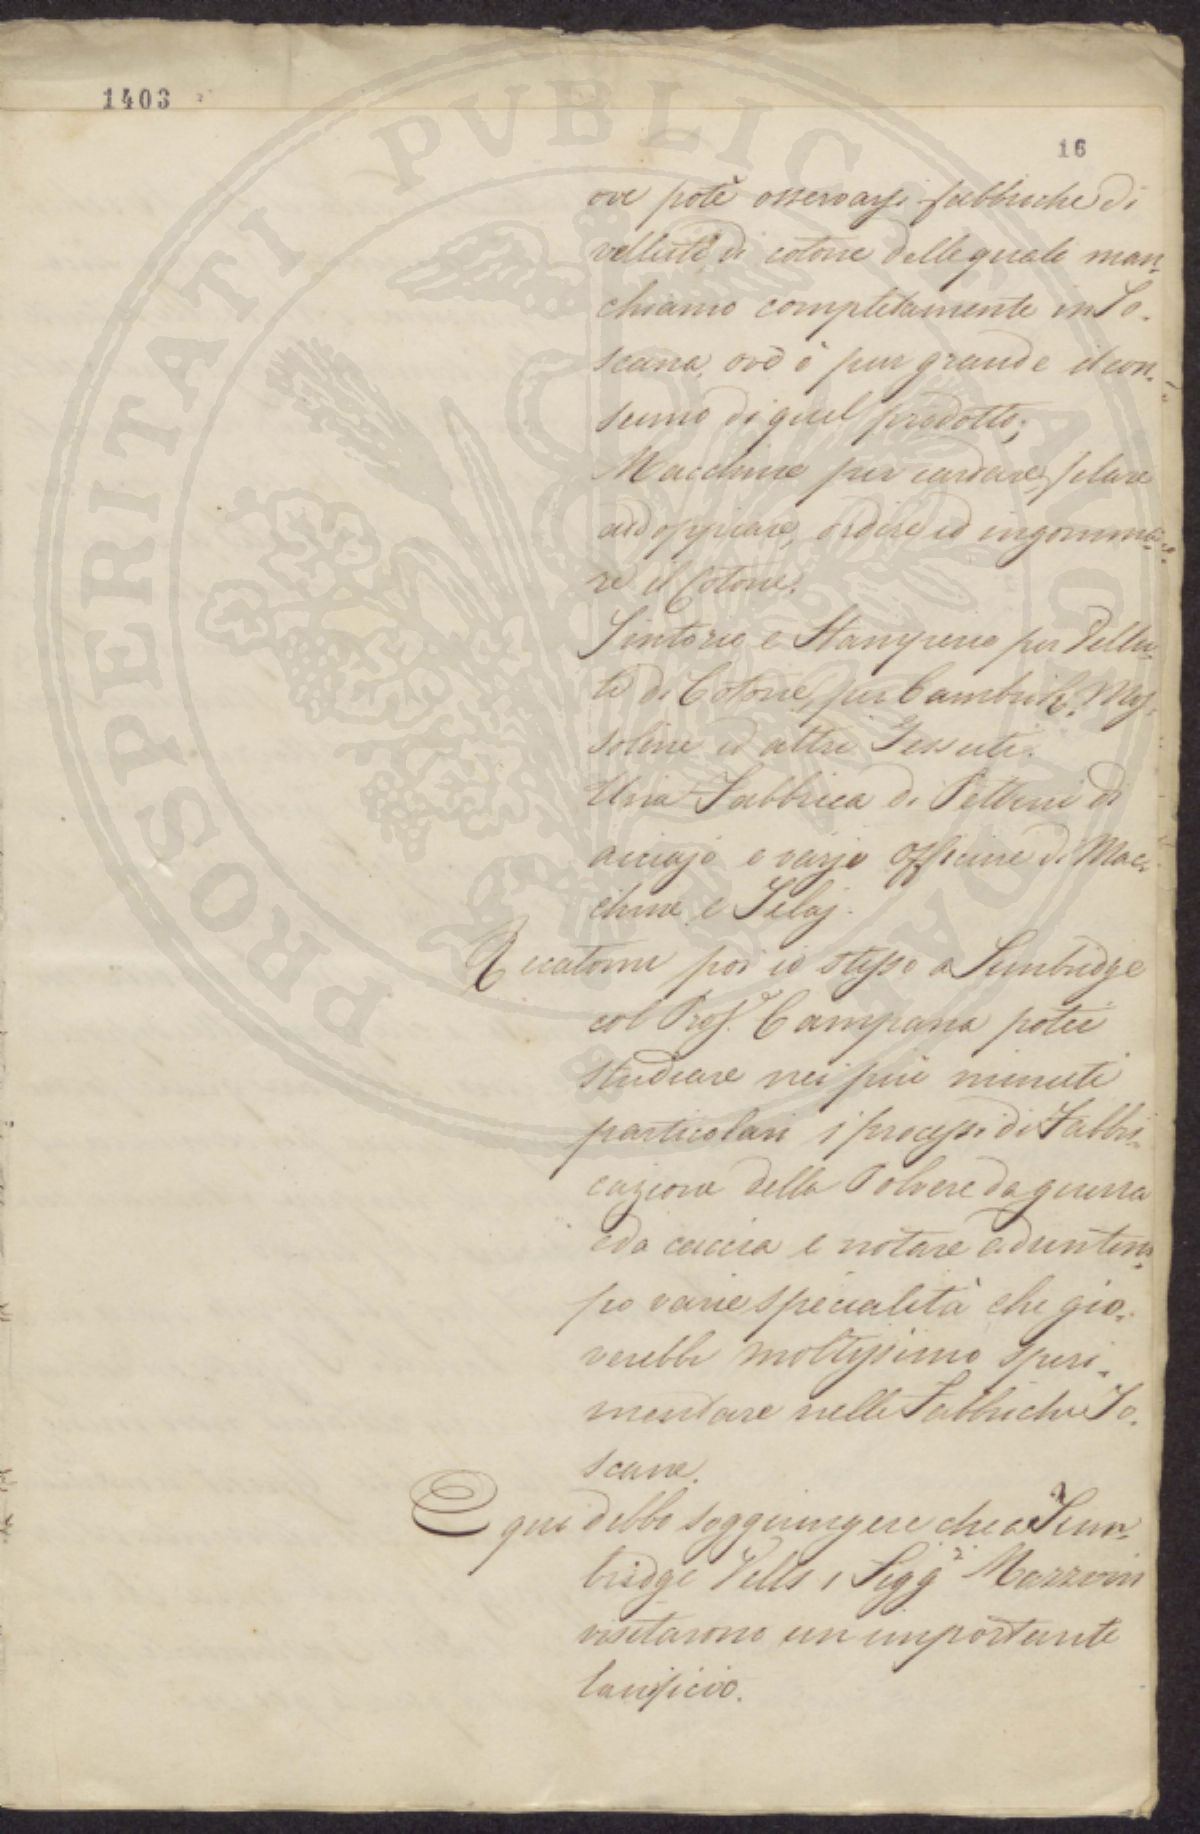 1403
16
ove potè osservarsi fabbriche di
velluti di cotone delle quali man=
chiamo completamente in To=
scana, ov'è pur grande il con=
sumo di quel prodotto;
Macchine per cardare, filare
addoppiare, ordire ed ingomma=
re il Cotone.
Tintorie e Stamperie per Vellu=
ti di Cotone, per Cambrik, Mus=
soline ed altri Tessuti.
Una Fabbrica di Pettini di
acciajo e varje Officine di Mac=
chine e Telaj.
Recatomi poi io stesso a Tunbridge
col Prof.e Campana potei
studiare nei più minuti
particolari i processi di Fabbri=
cazione della Polvere da guerra
e da caccia e notare ad un tem=
po varie specialità che gio=
verebbe moltissimo speri=
mentare nelle Fabbriche To=
scane.
E qui debbo soggiungere che a Tun=
bridge Vells i Sigg.i Mazzoni
visitarono un importante
lanificio.
PROSPERITATI PVBLICAE AVGENDAE